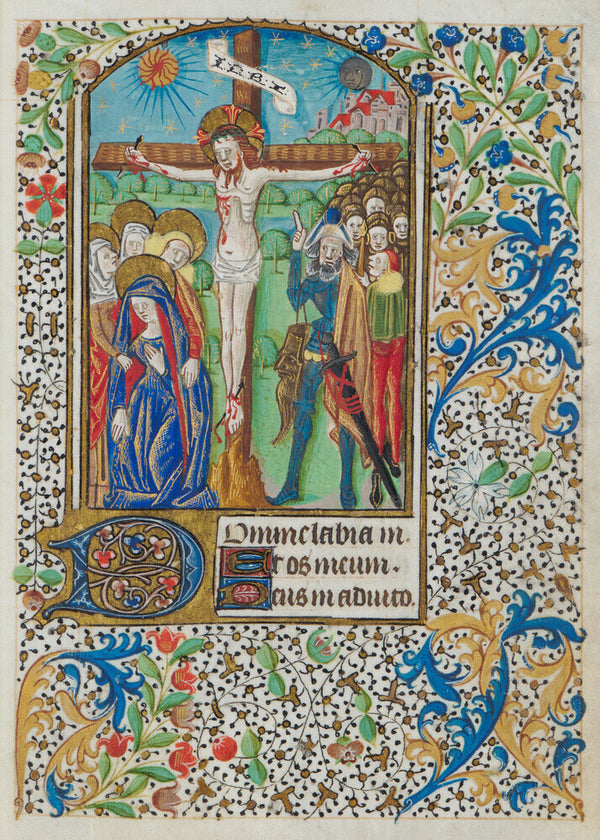 I.N.R.I
DOmine labia m.
Et os meum.
Deus in adiuto.